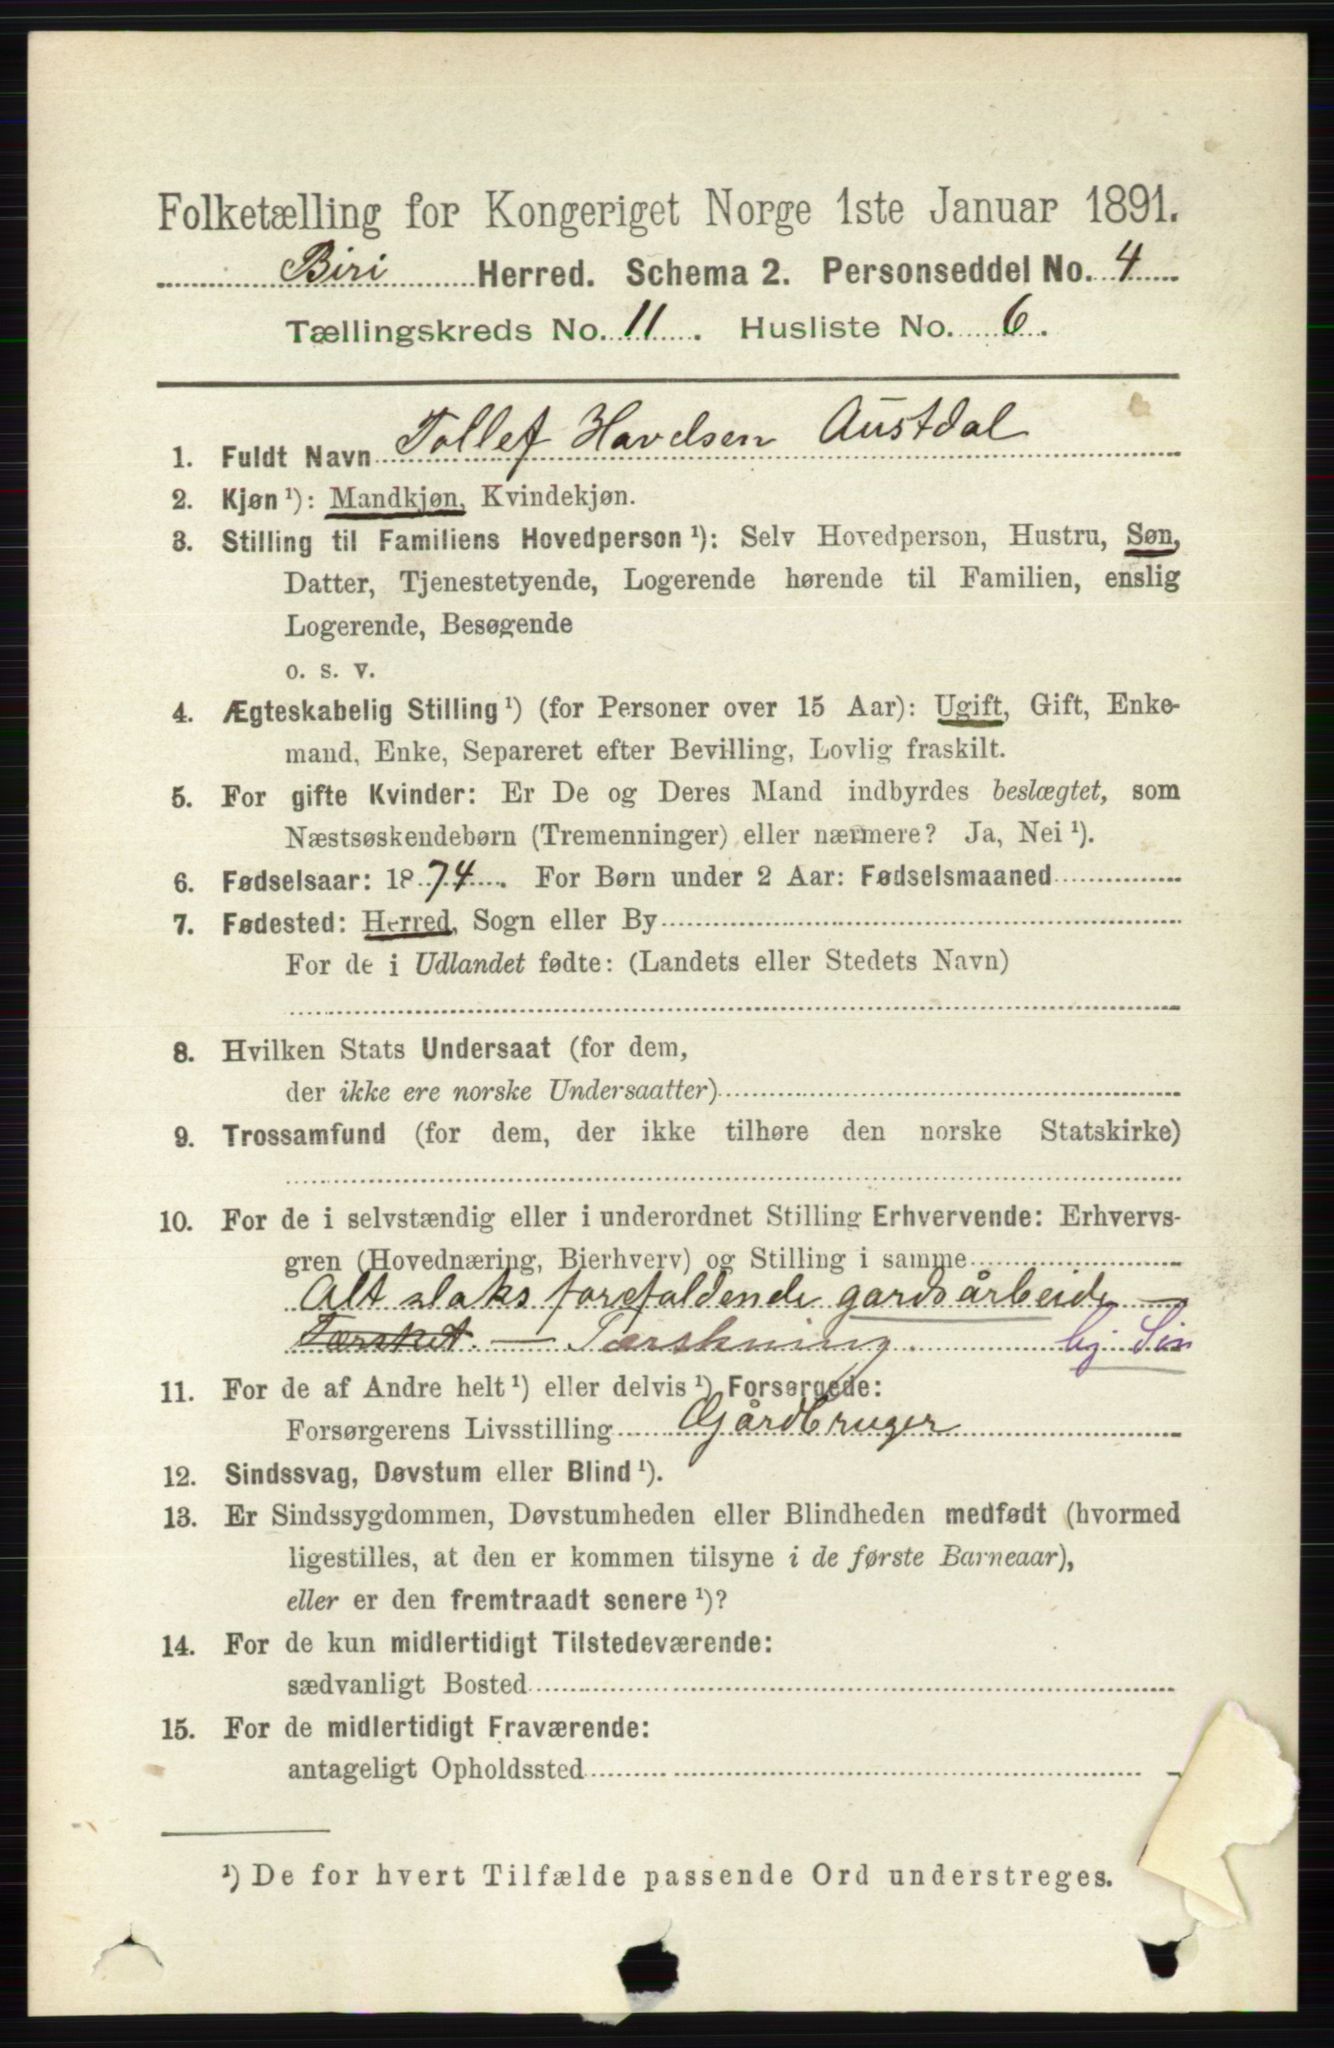 Folketælling for Kongeriget Norge 1ste Januar 1891.
Biri Herred. Schema 2. Personseddel No. 4
Tællingskreds No. 11. Husliste No. 6.
1. Fuldt Navn Tollef Havelsen Austdal
2. Kjøn ¹): Mandkjøn, Kvindekjøn.
3. Stilling til Familiens Hovedperson ¹): Selv Hovedperson, Hustru, Søn,
Datter, Tjenestetyende, Logerende hørende til Familien, enslig
Logerende, Besøgende
o. s. v.
4. Ægteskabelig Stilling ¹) (for Personer over 15 Aar): Ugift, Gift, Enke-
mand, Enke, Separeret efter Bevilling, Lovlig fraskilt.
5. For gifte Kvinder: Er De og Deres Mand indbyrdes beslægtet, som
Næstsøskendebørn (Tremenninger) eller nærmere? Ja, Nei ¹).
6. Fødselsaar: 1874. For Børn under 2 Aar: Fødselsmaaned
7. Fødested: Herred, Sogn eller By
For de i Udlandet fødte: (Landets eller Stedets Navn)
8. Hvilken Stats Undersaat (for dem,
der ikke ere norske Undersaatter)
9. Trossamfund (for dem, der ikke tilhøre den norske Statskirke)
10. For de i selvstændig eller i underordnet Stilling Erhvervende: Erhvervs-
gren (Hovednæring, Bierhverv) og Stilling i samme
Alt slaks forefaldende gardsårbeide —
Tærsket — Tærskning. bj. Søn
11. For de af Andre helt ¹) eller delvis ¹) Forsørgede:
Forsørgerens Livsstilling Gårdbruger
12. Sindssvag, Døvstum eller Blind ¹).
13. Er Sindssygdommen, Døvstumheden eller Blindheden medfødt (hvormed
ligestilles, at den er kommen tilsyne i de første Barneaar),
eller er den fremtraadt senere ¹)?
14. For de kun midlertidigt Tilstedeværende:
sædvanligt Bosted
15. For de midlertidigt Fraværende:
antageligt Opholdssted
¹) De for hvert Tilfælde passende Ord understreges.